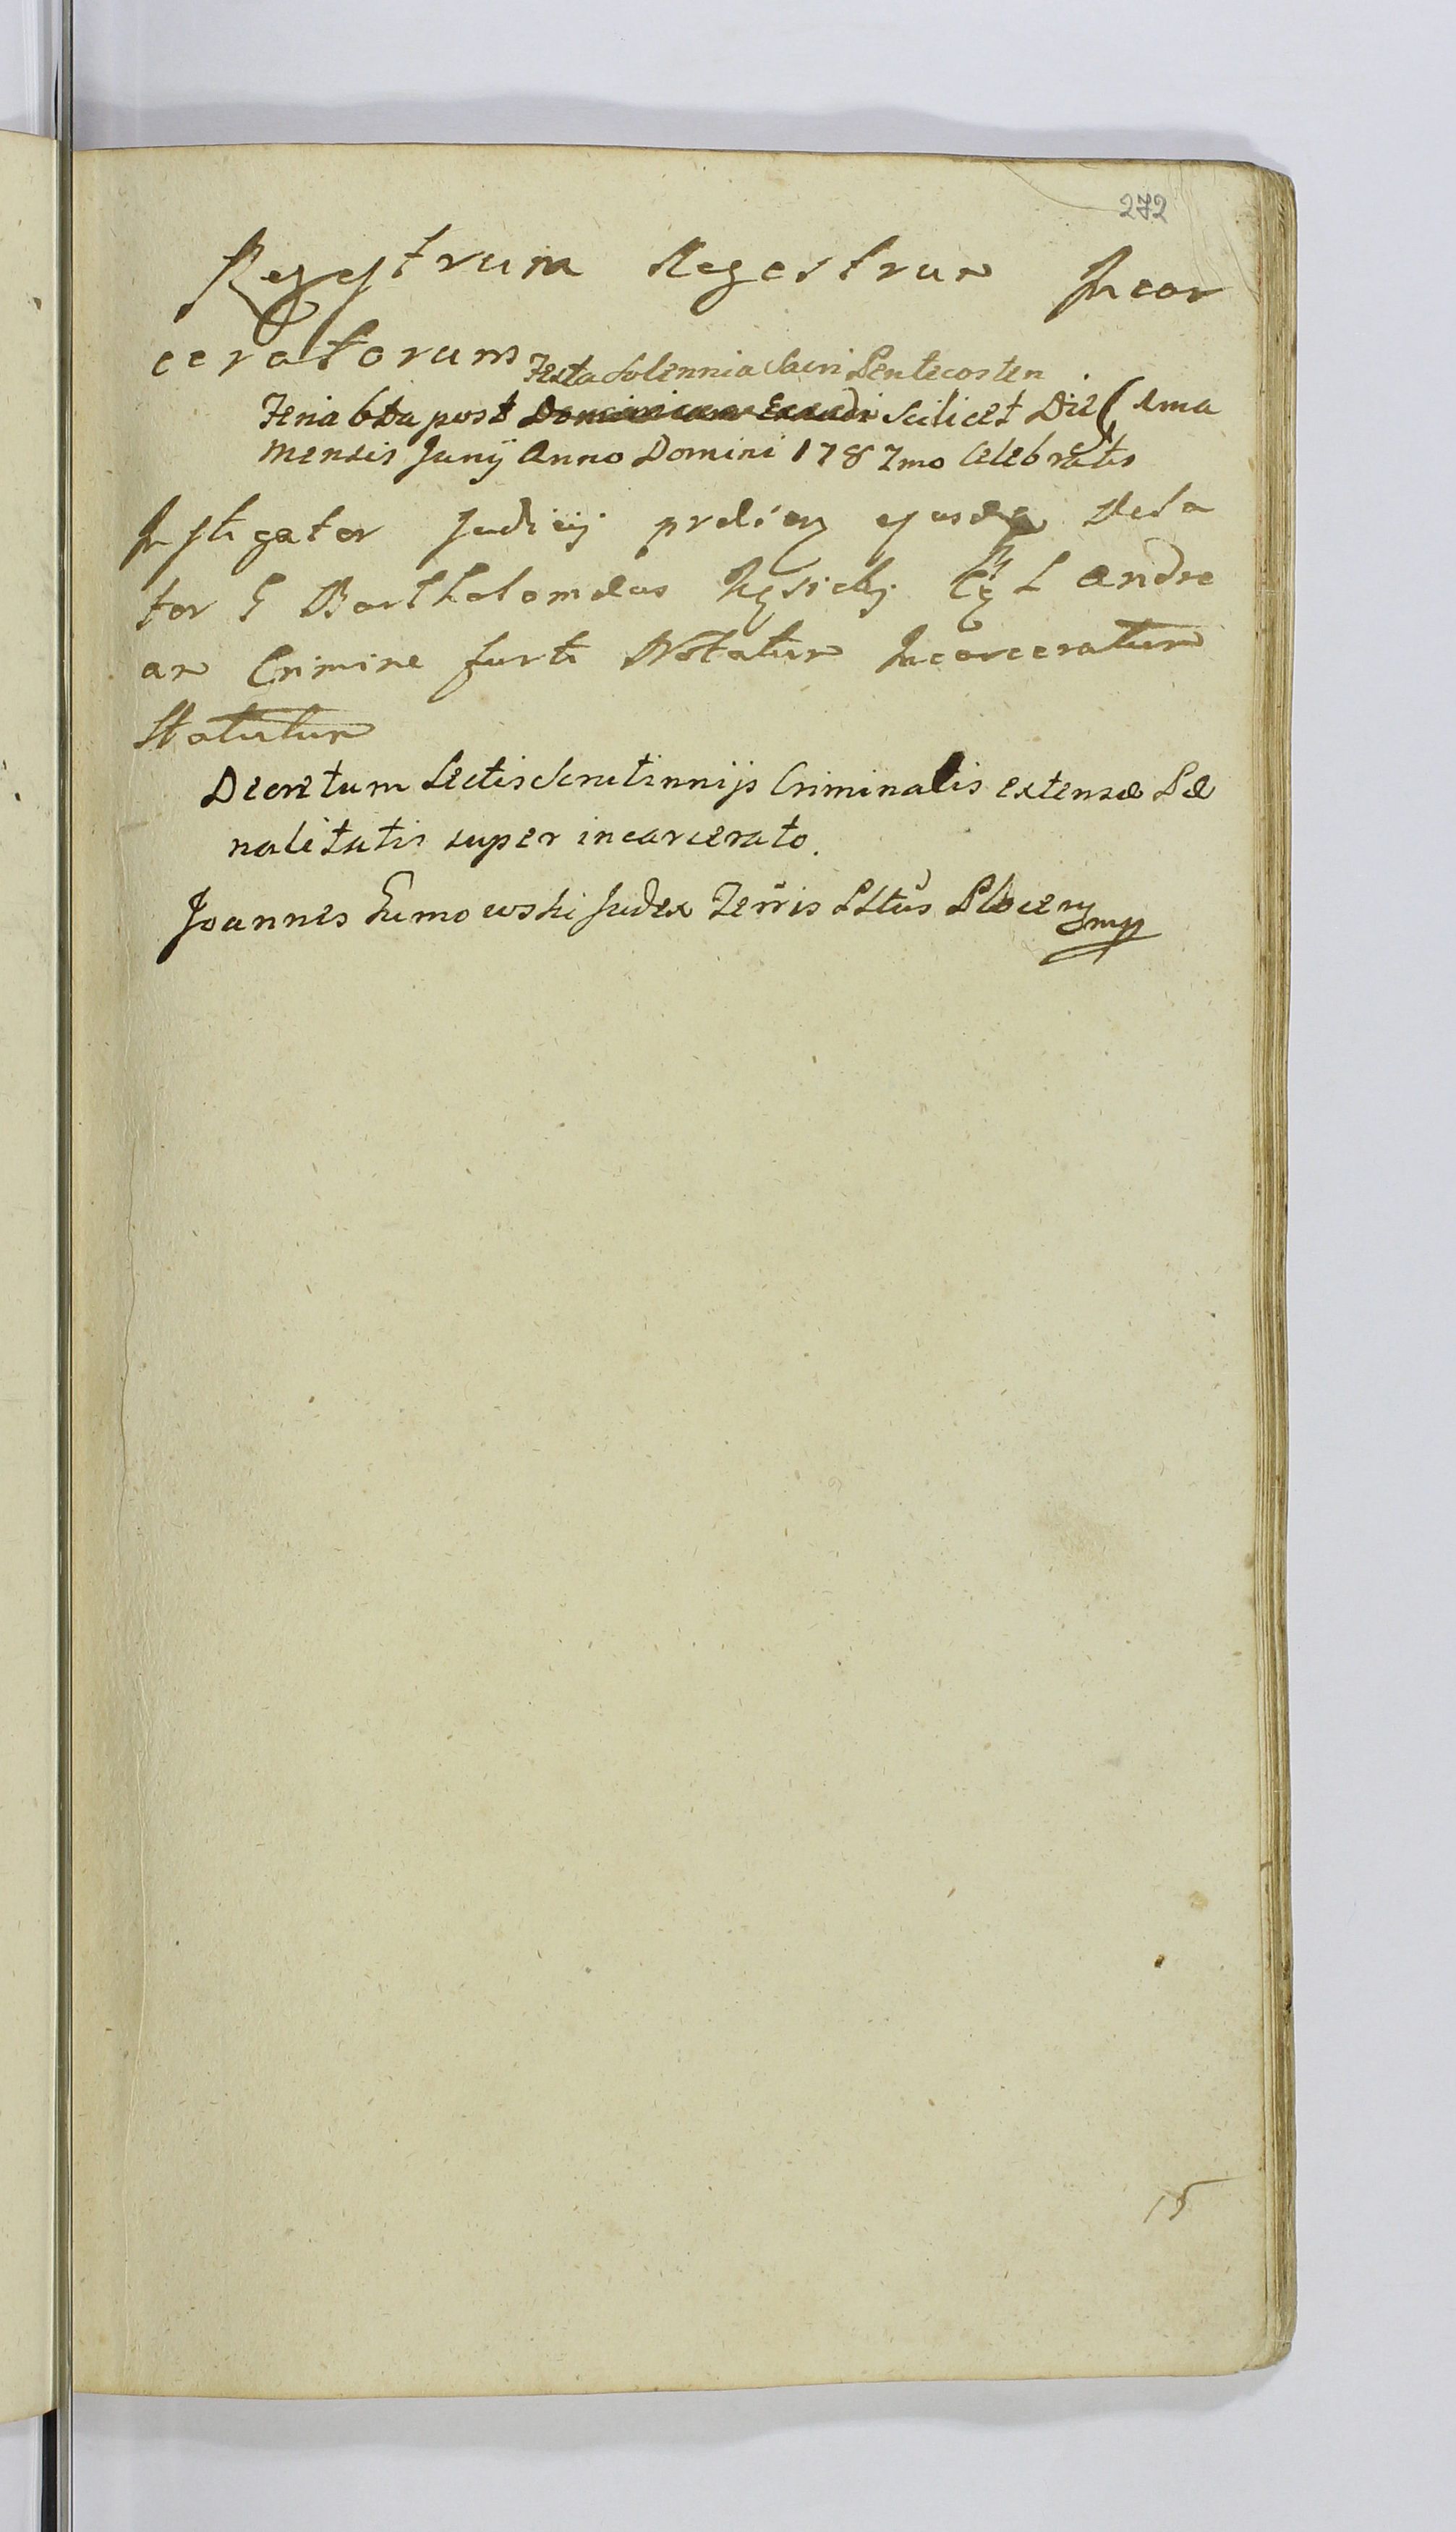 272
Regestrum Regestrum Incar
ceratorum
Festa Solennia Sacri Pentecosten
Feria 6ta post Dominicam Exaudi Scilicet Die 1ma
Mensis Junij Anno Domini 1787mo Celebratis
Instigator Judicij ejusdem Dela
tor G Bartholomeus L Andre
am Crimine furti Notatum Incarceratum
Statutum
Decretum Lectis Scrutinnijs Criminalis extensæ Pæ
nalitatis super incarcerato.
Joannes Gumowski Judex Terris Plocen mp
15